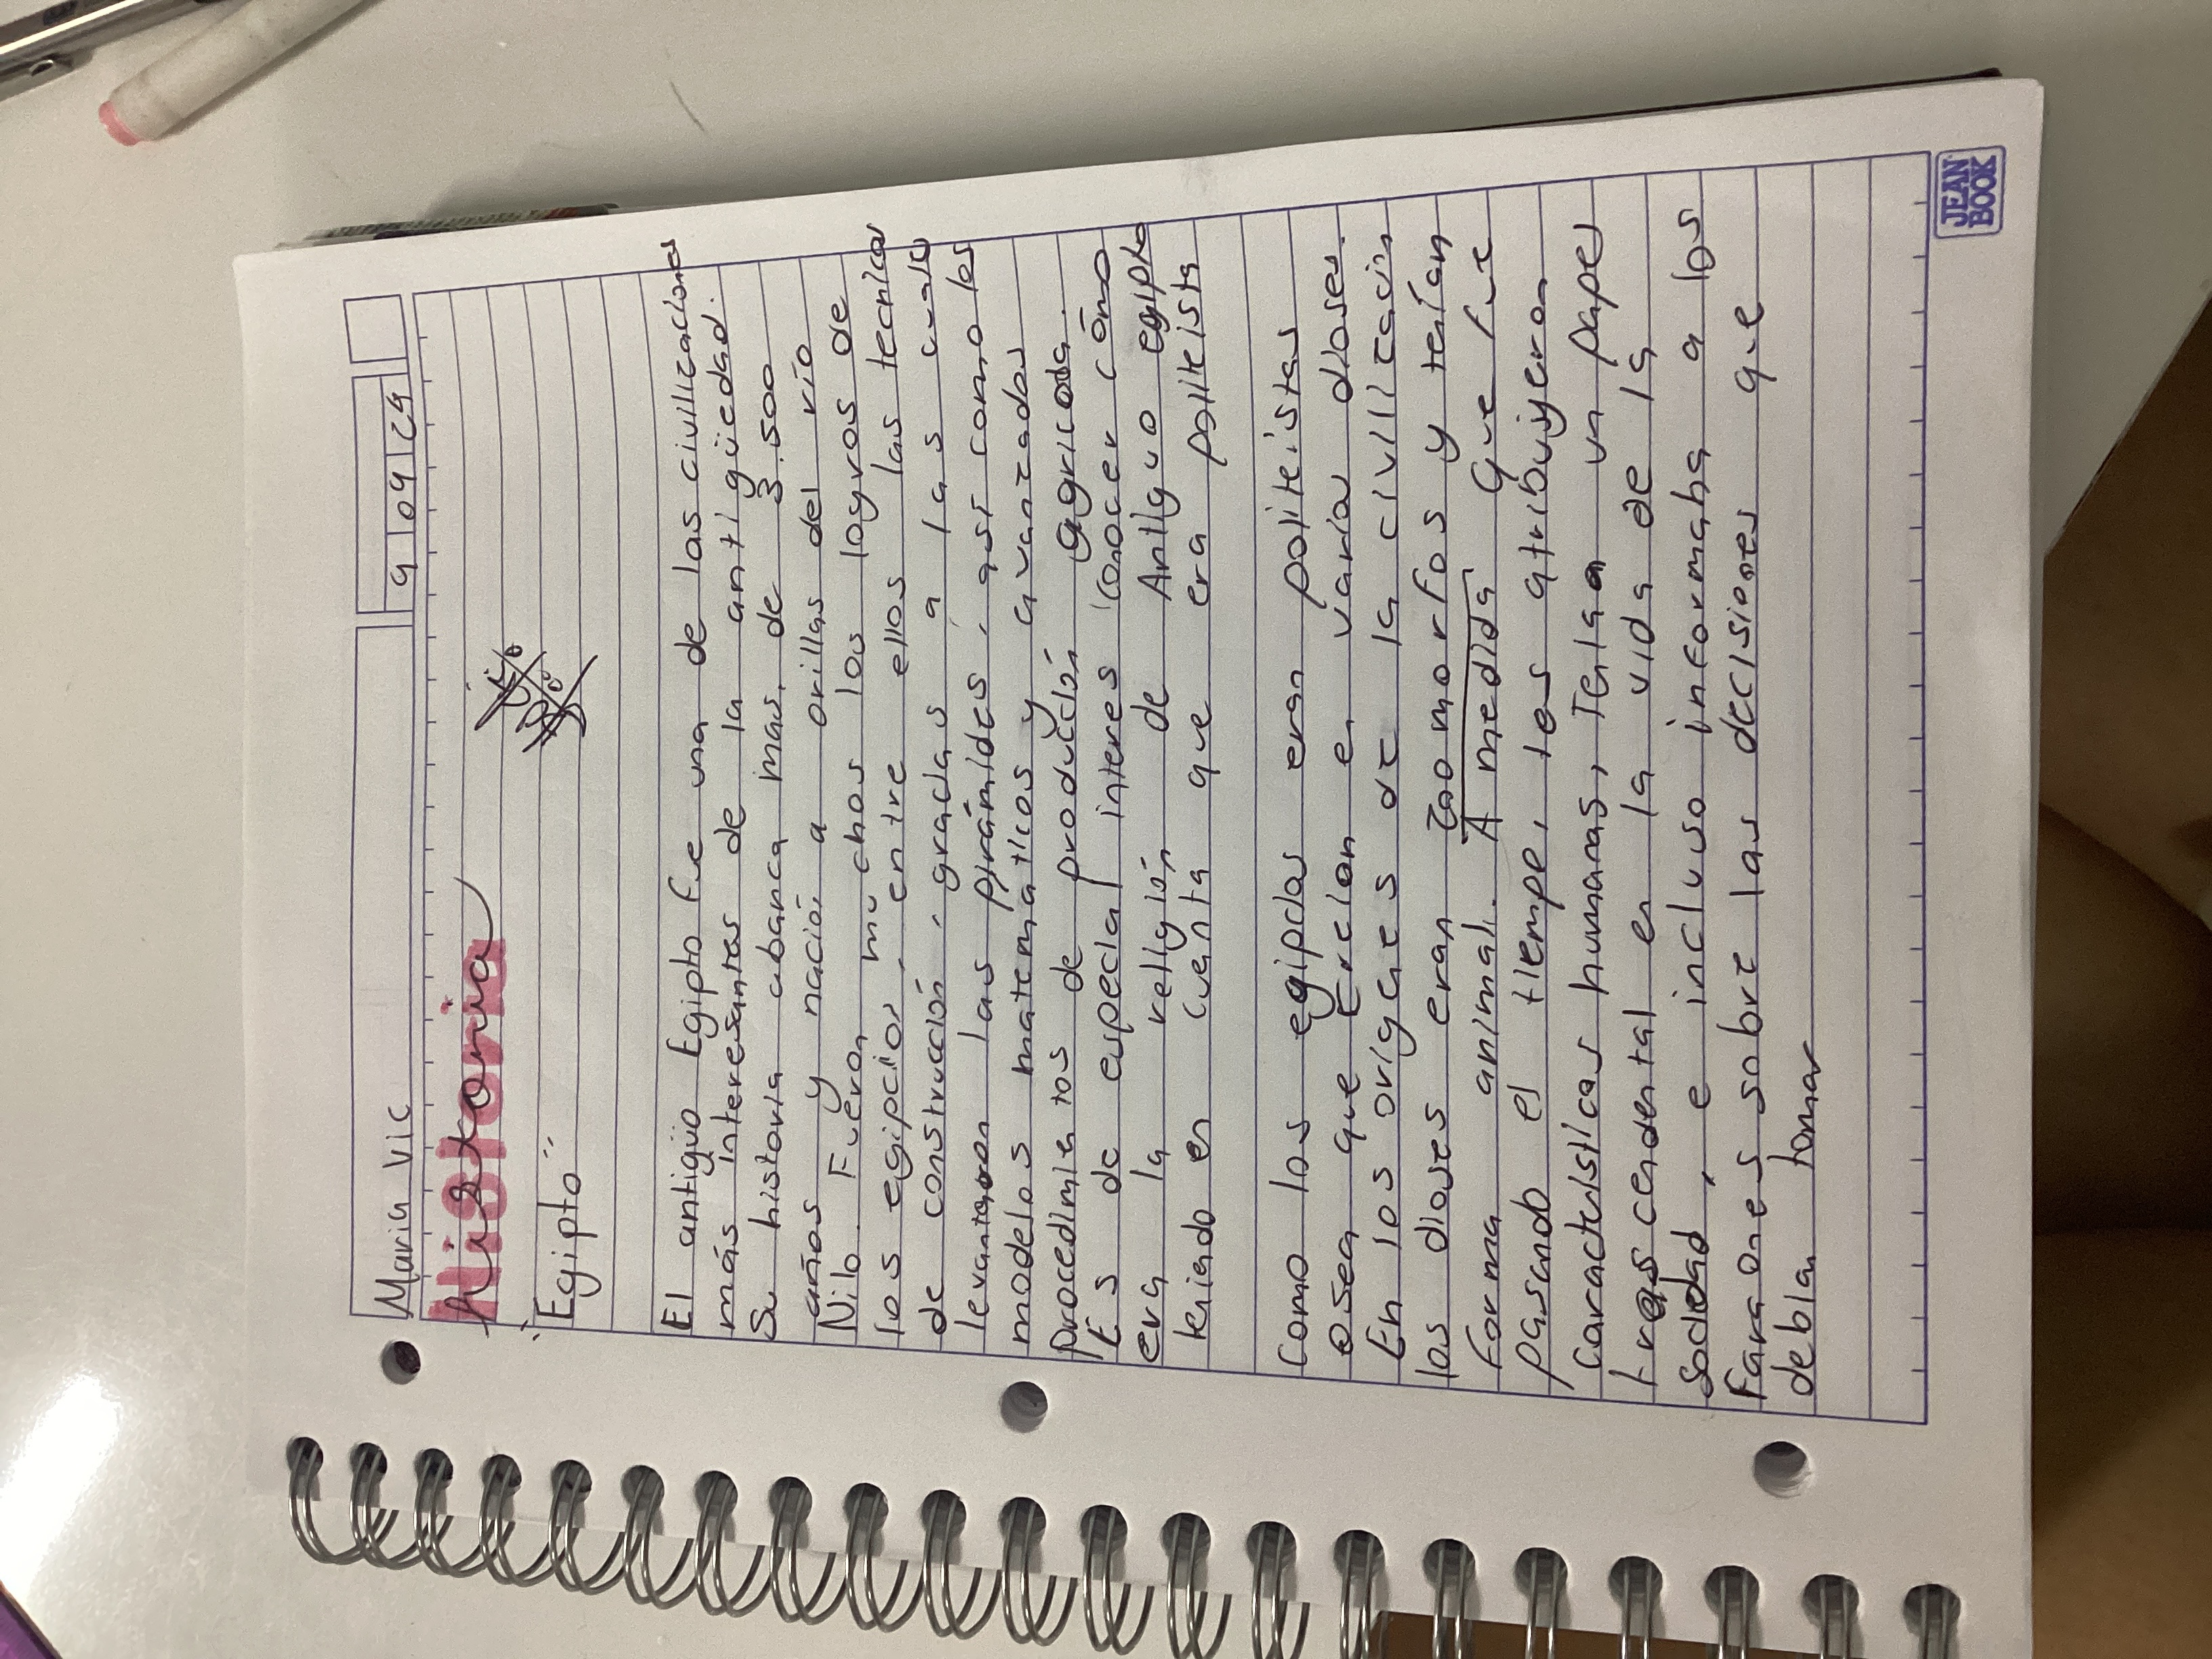 Maria Vic
9/09/29
Historia
"Egipto"
El antigüo Egipto fue una de las civilizaciones
más interesantes de la antigüedad.
Su historia abarca mas, de 3.500
años y nació, a orillas del río
Nilo. Fueron muchos los logros de
los egipcios, entre ellos las tecnicas
de construcción, gracias a las cuales
levantaron las pirámides, así como los
modelos matematicos y avanzados
procedimientos de producción agricola.
Es de especial interes conocer cómo
era la religión de Antiguo egipto
teniado en cuenta que era politeista
Como los egipcios eran politeistas
osea que creían en varios dioses.
En los orígenes de la civilización
los dioses eran zoomorfos y tenían
forma animal. A medida que fue
pasando el tiempo, les atribuyeron
Características humanas, Tenían un papel
trascendental en la vida de la
sociedad, e incluso informaba a los
Faraones sobre las decisiones que
debían tomar
JEAN
BOOK